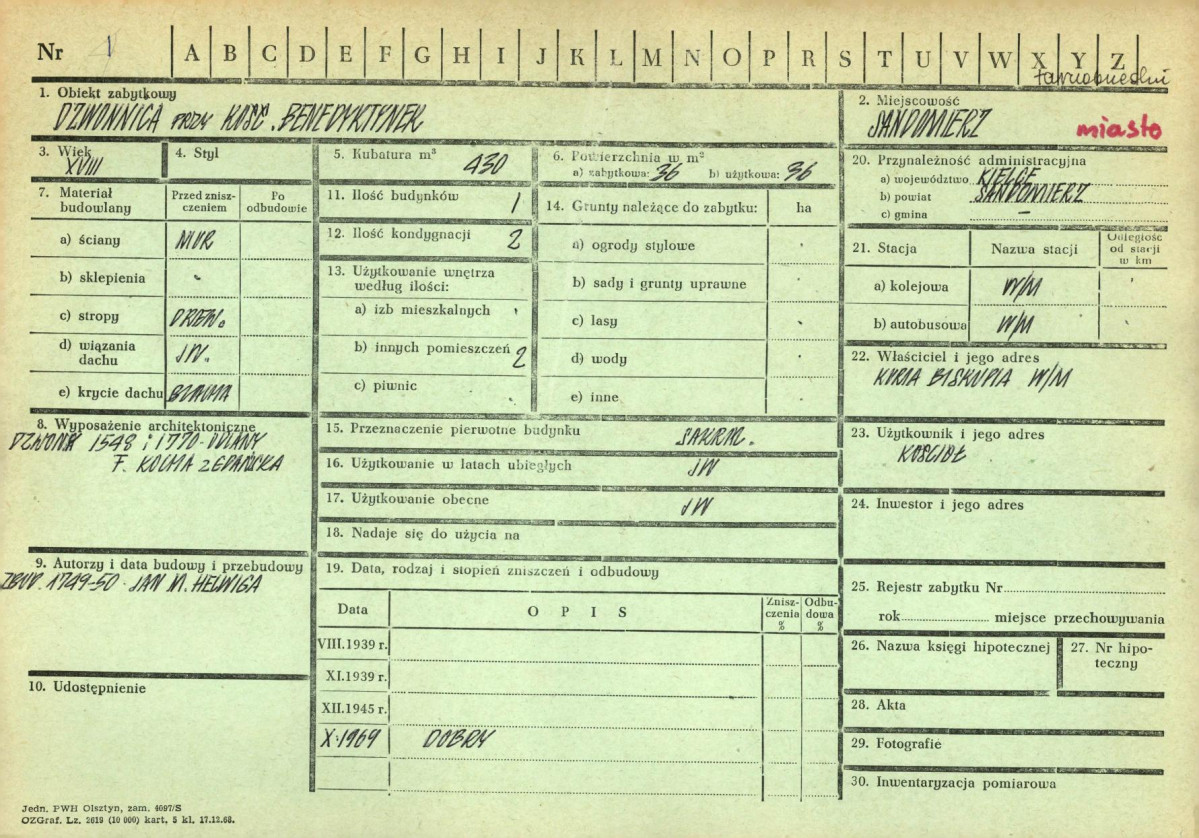 Nr 1 A B C D E F G H I J K L M N O P R S T U V W X Y Z
tarnobrzeski
1. Obiekt zabytkowy
DZWONNICA PRZY KOŚC. BENEDYKTYNEK
2. Miejscowość
SANDOMIERZ miasto
3. Wiek
XVIII
4. Styl
5. Kubatura m³ 430
6. Powierzchnia w m²
a) zabytkowa: 36 b) użytkowa: 36
20. Przynależność administracyjna
a) województwo KIELCE
b) powiat SANDOMIERZ
c) gmina —
7. Materiał budowlany
Przed zniszczeniem
Po odbudowie
a) ściany MUR
b) sklepienia -
c) stropy DREW.
d) wiązania dachu JW.
e) krycie dachu BLACHA
11. Ilość budynków 1
12. Ilość kondygnacji 2
13. Użytkowanie wnętrza
według ilości:
a) izb mieszkalnych
b) innych pomieszczeń 2
c) piwnic
14. Grunty należące do zabytku: ha
a) ogrody stylowe
b) sady i grunty uprawne
c) lasy
d) wody
e) inne
21. Stacja
Nazwa stacji
Odległość
od stacji
w km
a) kolejowa W/M
b) autobusowa W/M
22. Właściciel i jego adres
KURIA BISKUPIA W/M
8. Wyposażenie architektoniczne
DZWONY 1548 i 1770 - ODLANY
F. KOCHA Z GDAŃSKA
15. Przeznaczenie pierwotne budynku SAKRAL.
16. Użytkowanie w latach ubiegłych JW
17. Użytkowanie obecne JW
18. Nadaje się do użycia na
23. Użytkownik i jego adres
KOŚCIÓŁ
24. Inwestor i jego adres
9. Autorzy i data budowy i przebudowy
ZBUD. 1749-50 JAN M. HELWIGA
10. Udostępnienie
19. Data, rodzaj i stopień zniszczeń i odbudowy
Data
OPIS
Zniszczenia
%
Odbudowa
%
VIII.1939 r.
XI.1939 r.
XII.1945 r.
X.1969 DOBRY
25. Rejestr zabytku Nr
rok miejsce przechowywania
26. Nazwa księgi hipotecznej
27. Nr hipoteczny
28. Akta
29. Fotografie
30. Inwentaryzacja pomiarowa
Jedn. PWH Olsztyn, zam. 4097/S
OZGraf. Lz. 2619 (10 000) kart. 5 kl. 17.12.68.